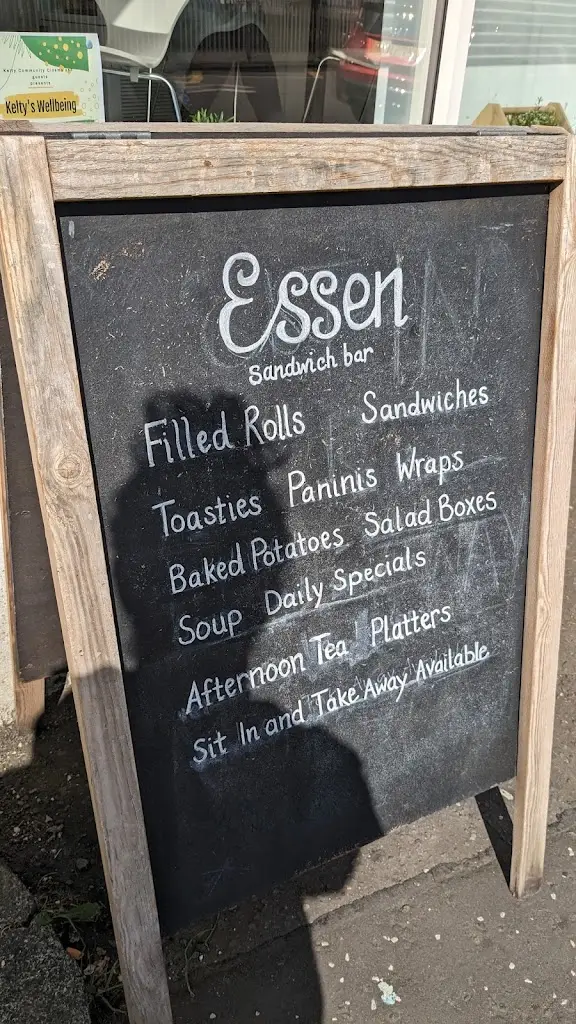 Kelty Community Cinema
presents
Kelty's Wellbeing
Essen
Sandwich bar
Filled Rolls Sandwiches
Toasties Paninis Wraps
Baked Potatoes Salad Boxes
Soup Daily Specials
Afternoon Tea Platters
Sit In and Take Away Available